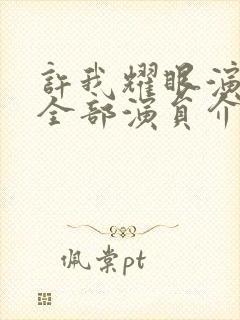 許我耀眼演
全部演員介
佩棠pt